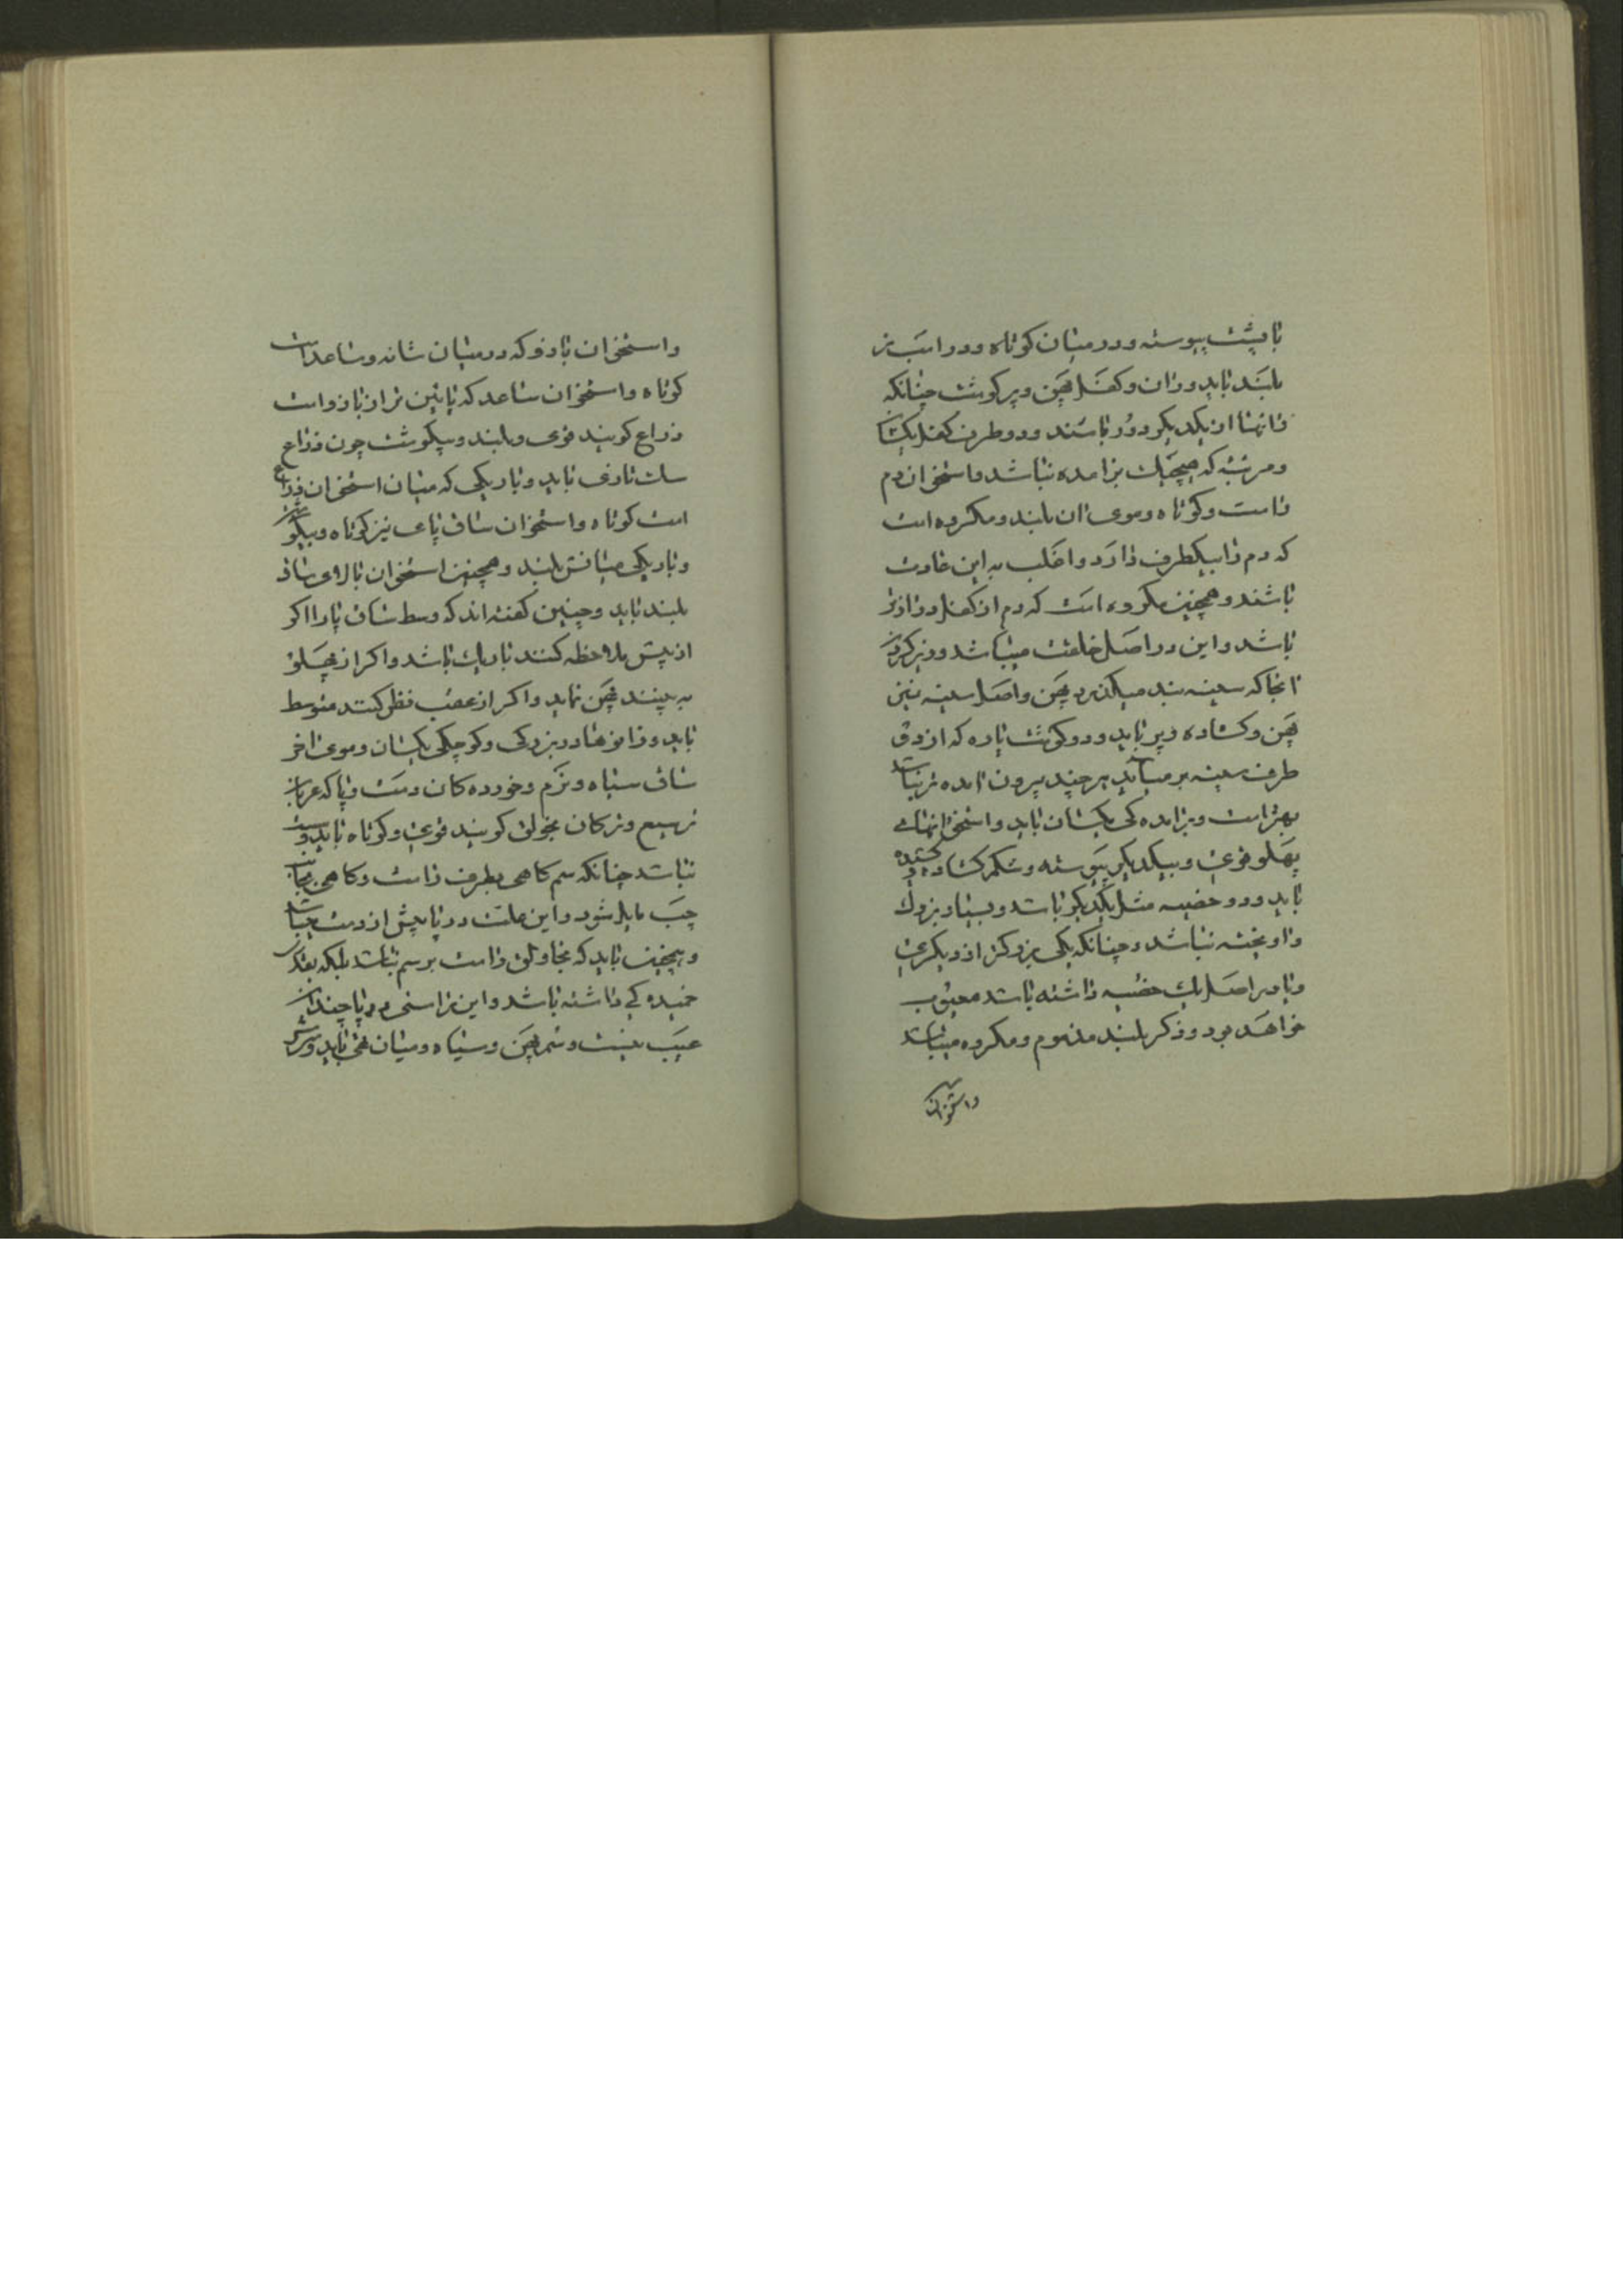 با پشت پیوسته و در میان کوتاه و در اسب نر
بلند باید و ران و کفل پهن و پر کوشت چنانکه
رانها از یکدیکر دور باشند و دو طرف کفل یکسان
و مرتبه که هیچیک برامده نباشد و استخوان دم
راست و کوتاه و موی ان بلند و مکروه است
که دم را بیکطرف دارد و اغلب به این عادت
باشند و همچنین مکروه است که دم از کفل درازتر
باشد و این در اصل خلقت میباشد و زیر کردن
انجا که سینه بند میکذرد پهن و اصل سینه نیز
پهن و کشاده و پر باید و دو کوشت پاره که از دو
طرف سینه بر میاید هر چند بیرون امده تر باشد
بهتر است و برامده کی یکسان باید و استخوانهای
پهلو قوی و بیکدیکر پیوسته و شکم کشاده و کشیده
باید و دو خصیه مثل یکدیکر باشد و بسیار بزرک
و اویخته نباشد و چنانکه یکی بزرکتر از دیکری
و یا در اصل یک خصیه داشته باشد معیوب
خواهد بود و ذکر بلند مذموم و مکروه میباشد
و استخوان
و استخوان بازو که در میان شانه و ساعد است
کوتاه و استخوان ساعد که پایین تر از بازو است
ذراع کویند قوی و بلند و پیکوشت چون ذراع
سک تازی باید و باریکی که میان استخوان ذراع
است کوتاه و استخوان ساق پای نیز کوتاه و بیکوشت
و باریکی میانش بلند و همچنین استخوان بالای ساق
بلند باید و چنین کفته اند که وسط ساق پا را اکر
از پیش ملاحظه کنند باریک باشد و اکر از پهلو
به بینند پهن نماید و اکر از عقب نظر کنند متوسط
باید و زانوها در بزرکی و کوچکی یکسان و موی اخر
ساق سیاه و نرم و خورده کان دست و پا که عربان
ترسیع و ترکان بخولق کویند قوی و کوتاه باید و سست
نباشد چنانکه سم کاهی بطرف راست و کاهی بجانب
چپ مایل شود و این علت در پا بیش از دست میباشد
و همچنین باید که بخاولق راست بر سم نباشد بلکه بقدر
خمیده کی داشته باشد و این راستی در پا چندان
عیب نیست و سم پهن و سیاه و میان تهی باید و سرش